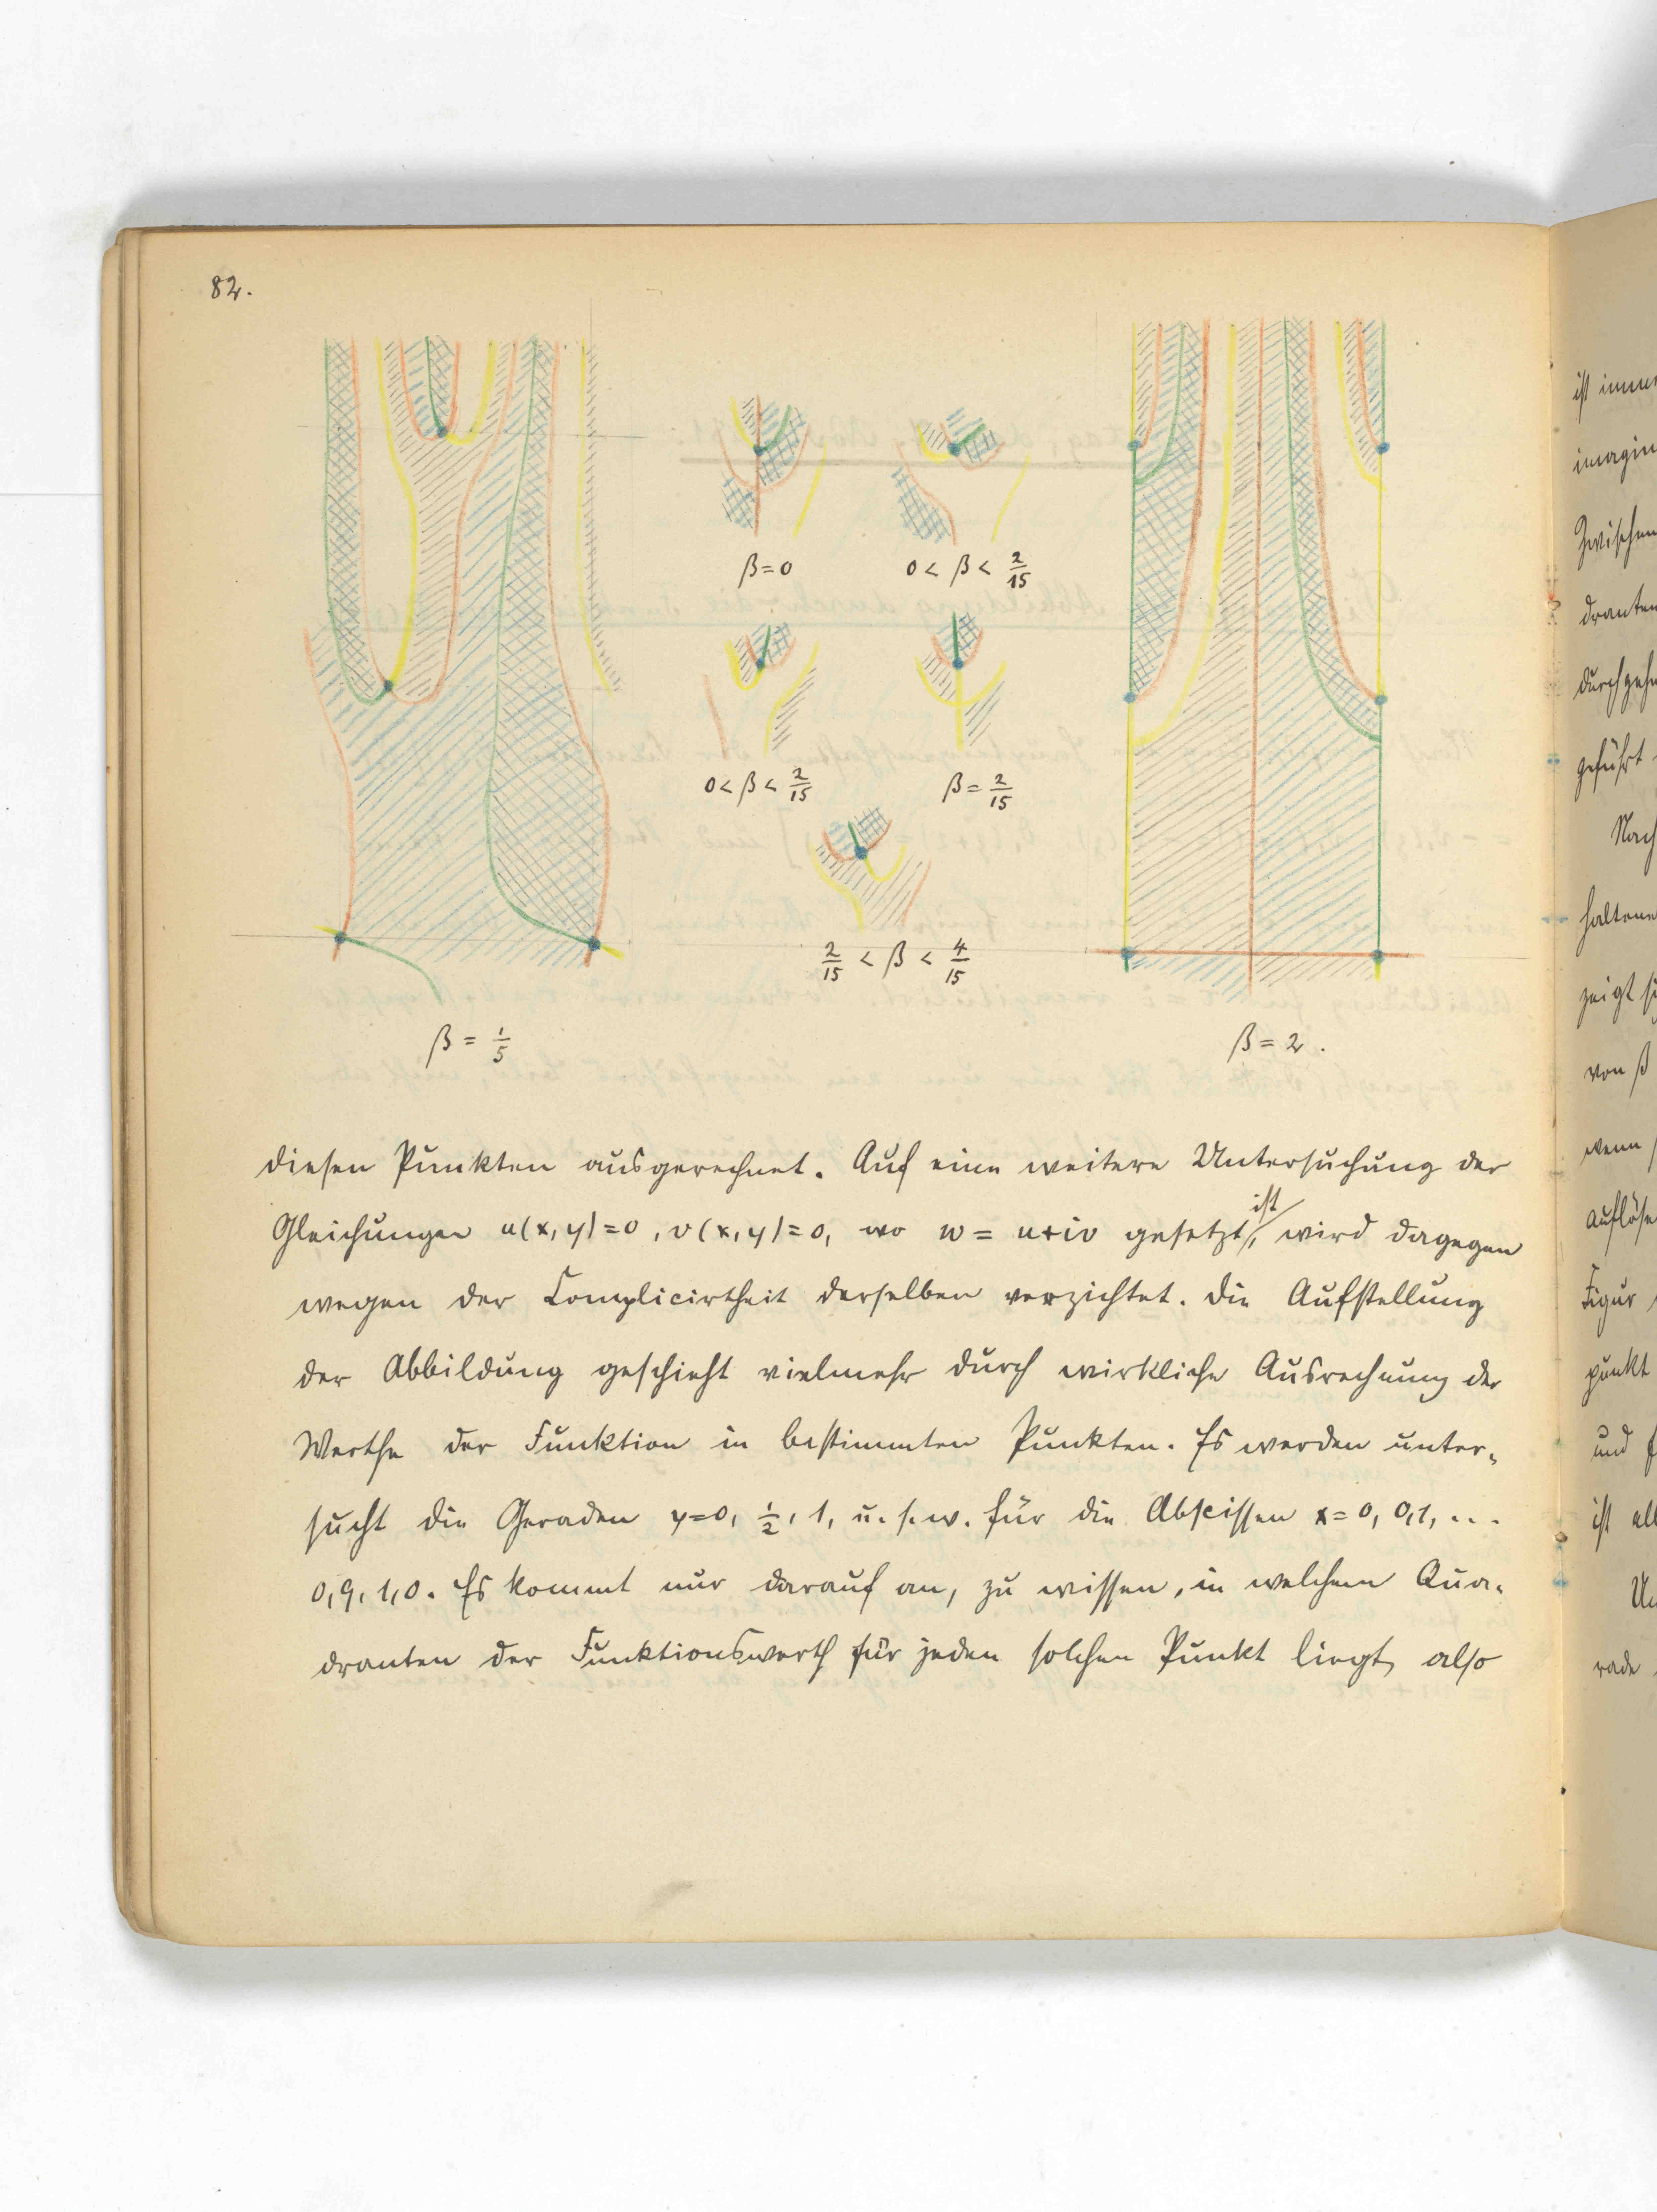 82.
β = 0
0 < β < 2/15
0 < β < 2/15
β = 2/15
2/15 < β < 4/15
β = 1/5
β = 2.
diesen Punkten ausgerechnet. Auf eine weitere Untersuchung der
Gleichungen u(x,y)=0, v(x,y)=0, wo w = u+iv gesetzt ist, wird dagegen
wegen der Complicirtheit derselben verzichtet. Die Aufstellung
der Abbildung geschieht vielmehr durch wirkliche Ausrechnung der
Werthe der Funktion in bestimmten Punkten. Es werden unter-
sucht die Geraden y=0, 1/2, 1, u. s. w. für die Abscissen x=0, 0,1, ...
0,9, 1,0. Es kommt nur darauf an, zu wissen, in welchem Qua-
dranten der Funktionswerth für jeden solchen Punkt liegt, also
Zwischen
dranten
geführt
Nach
zeigt
von β
wenn
Figur
punkt
und
ist all